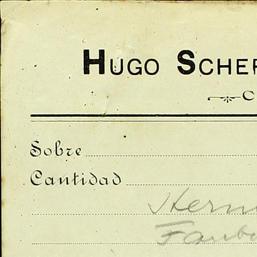 HUGO SCHER
C
Sobre
Cantidad
Herm
Faub